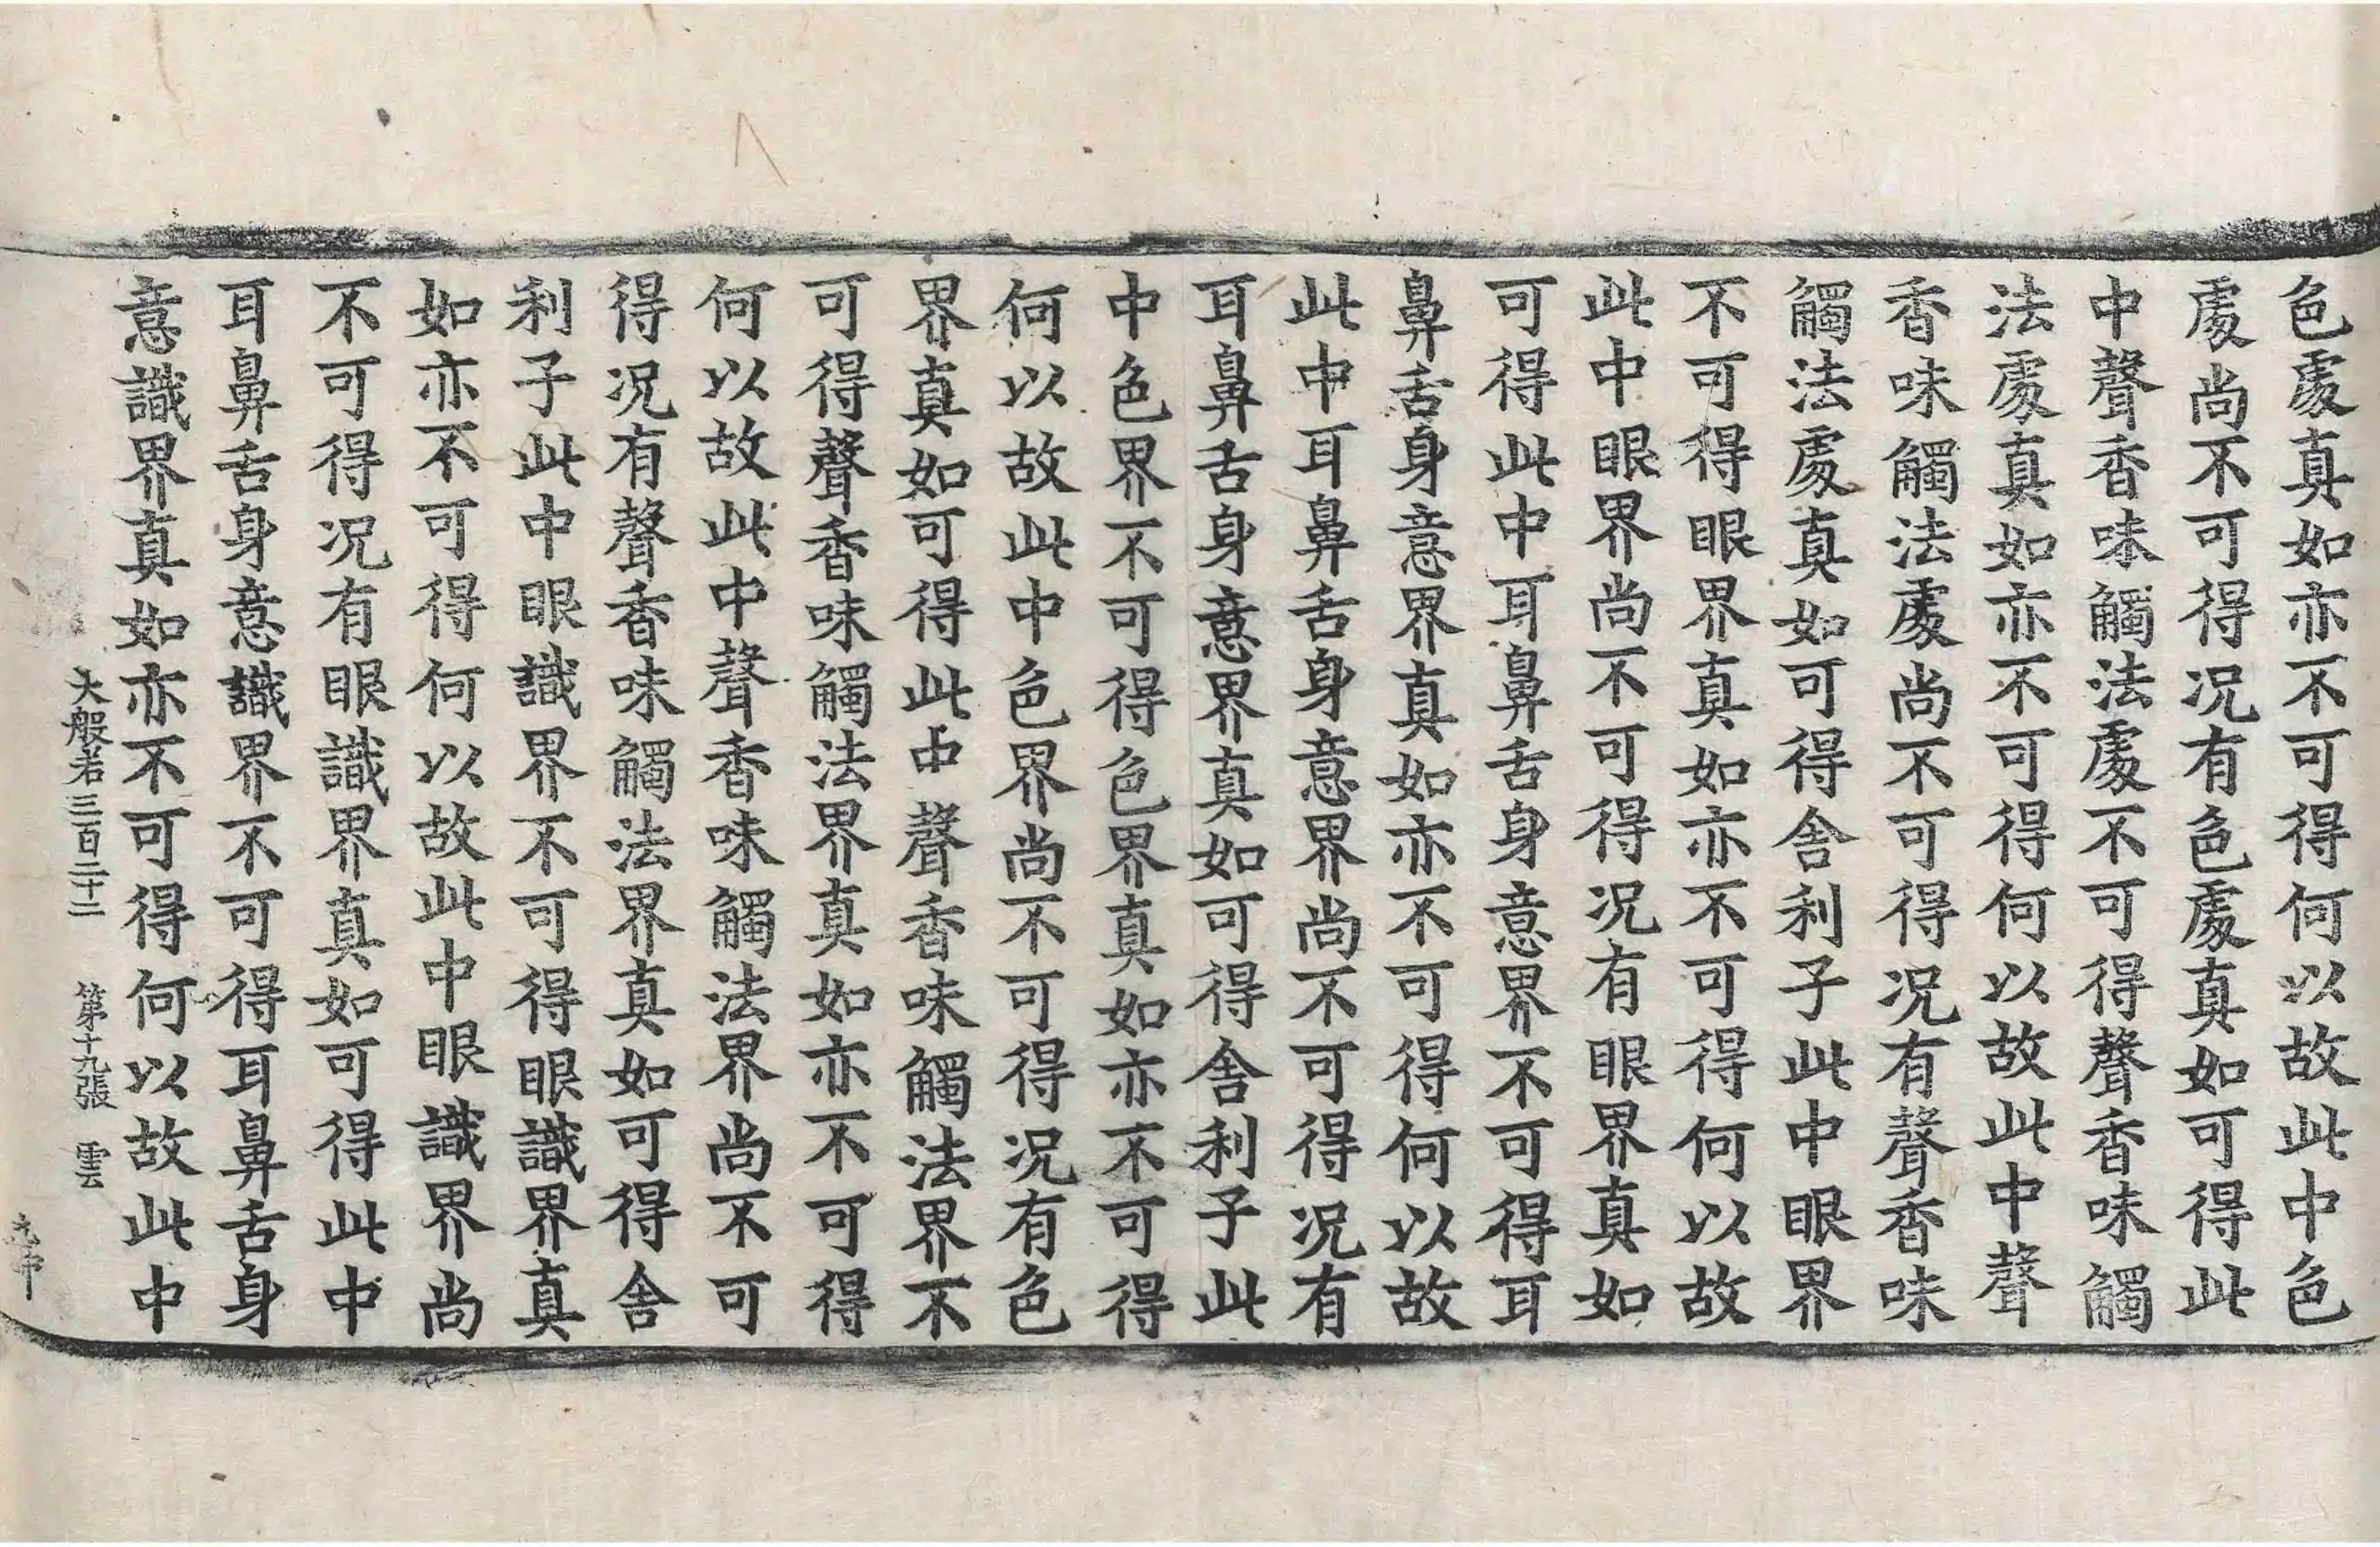 色處真如亦不可得何以故此中色
處尚不可得况有色處真如可得此
中聲香味觸法處不可得聲香味觸
法處真如亦不可得何以故此中聲
香味觸法處尚不可得况有聲香味
觸法處真如可得舍利子此中眼界
不可得眼界真如亦不可得何以故
此中眼界尚不可得况有眼界真如
可得此中耳鼻舌身意界不可得耳
鼻舌身意界真如亦不可得何以故
此中耳鼻舌身意界尚不可得况有
耳鼻舌身意界真如可得舍利子此
中色界不可得色界真如亦不可得
何以故此中色界尚不可得况有色
界真如可得此中聲香味觸法界不
可得聲香味觸法界真如亦不可得
何以故此中聲香味觸法界尚不可
得况有聲香味觸法界真如可得舍
利子此中眼識界不可得眼識界真
如亦不可得何以故此中眼識界尚
不可得况有眼識界真如可得此中
耳鼻舌身意識界不可得耳鼻舌身
意識界真如亦不可得何以故此中
大般若三百二十二 第十九張 雲